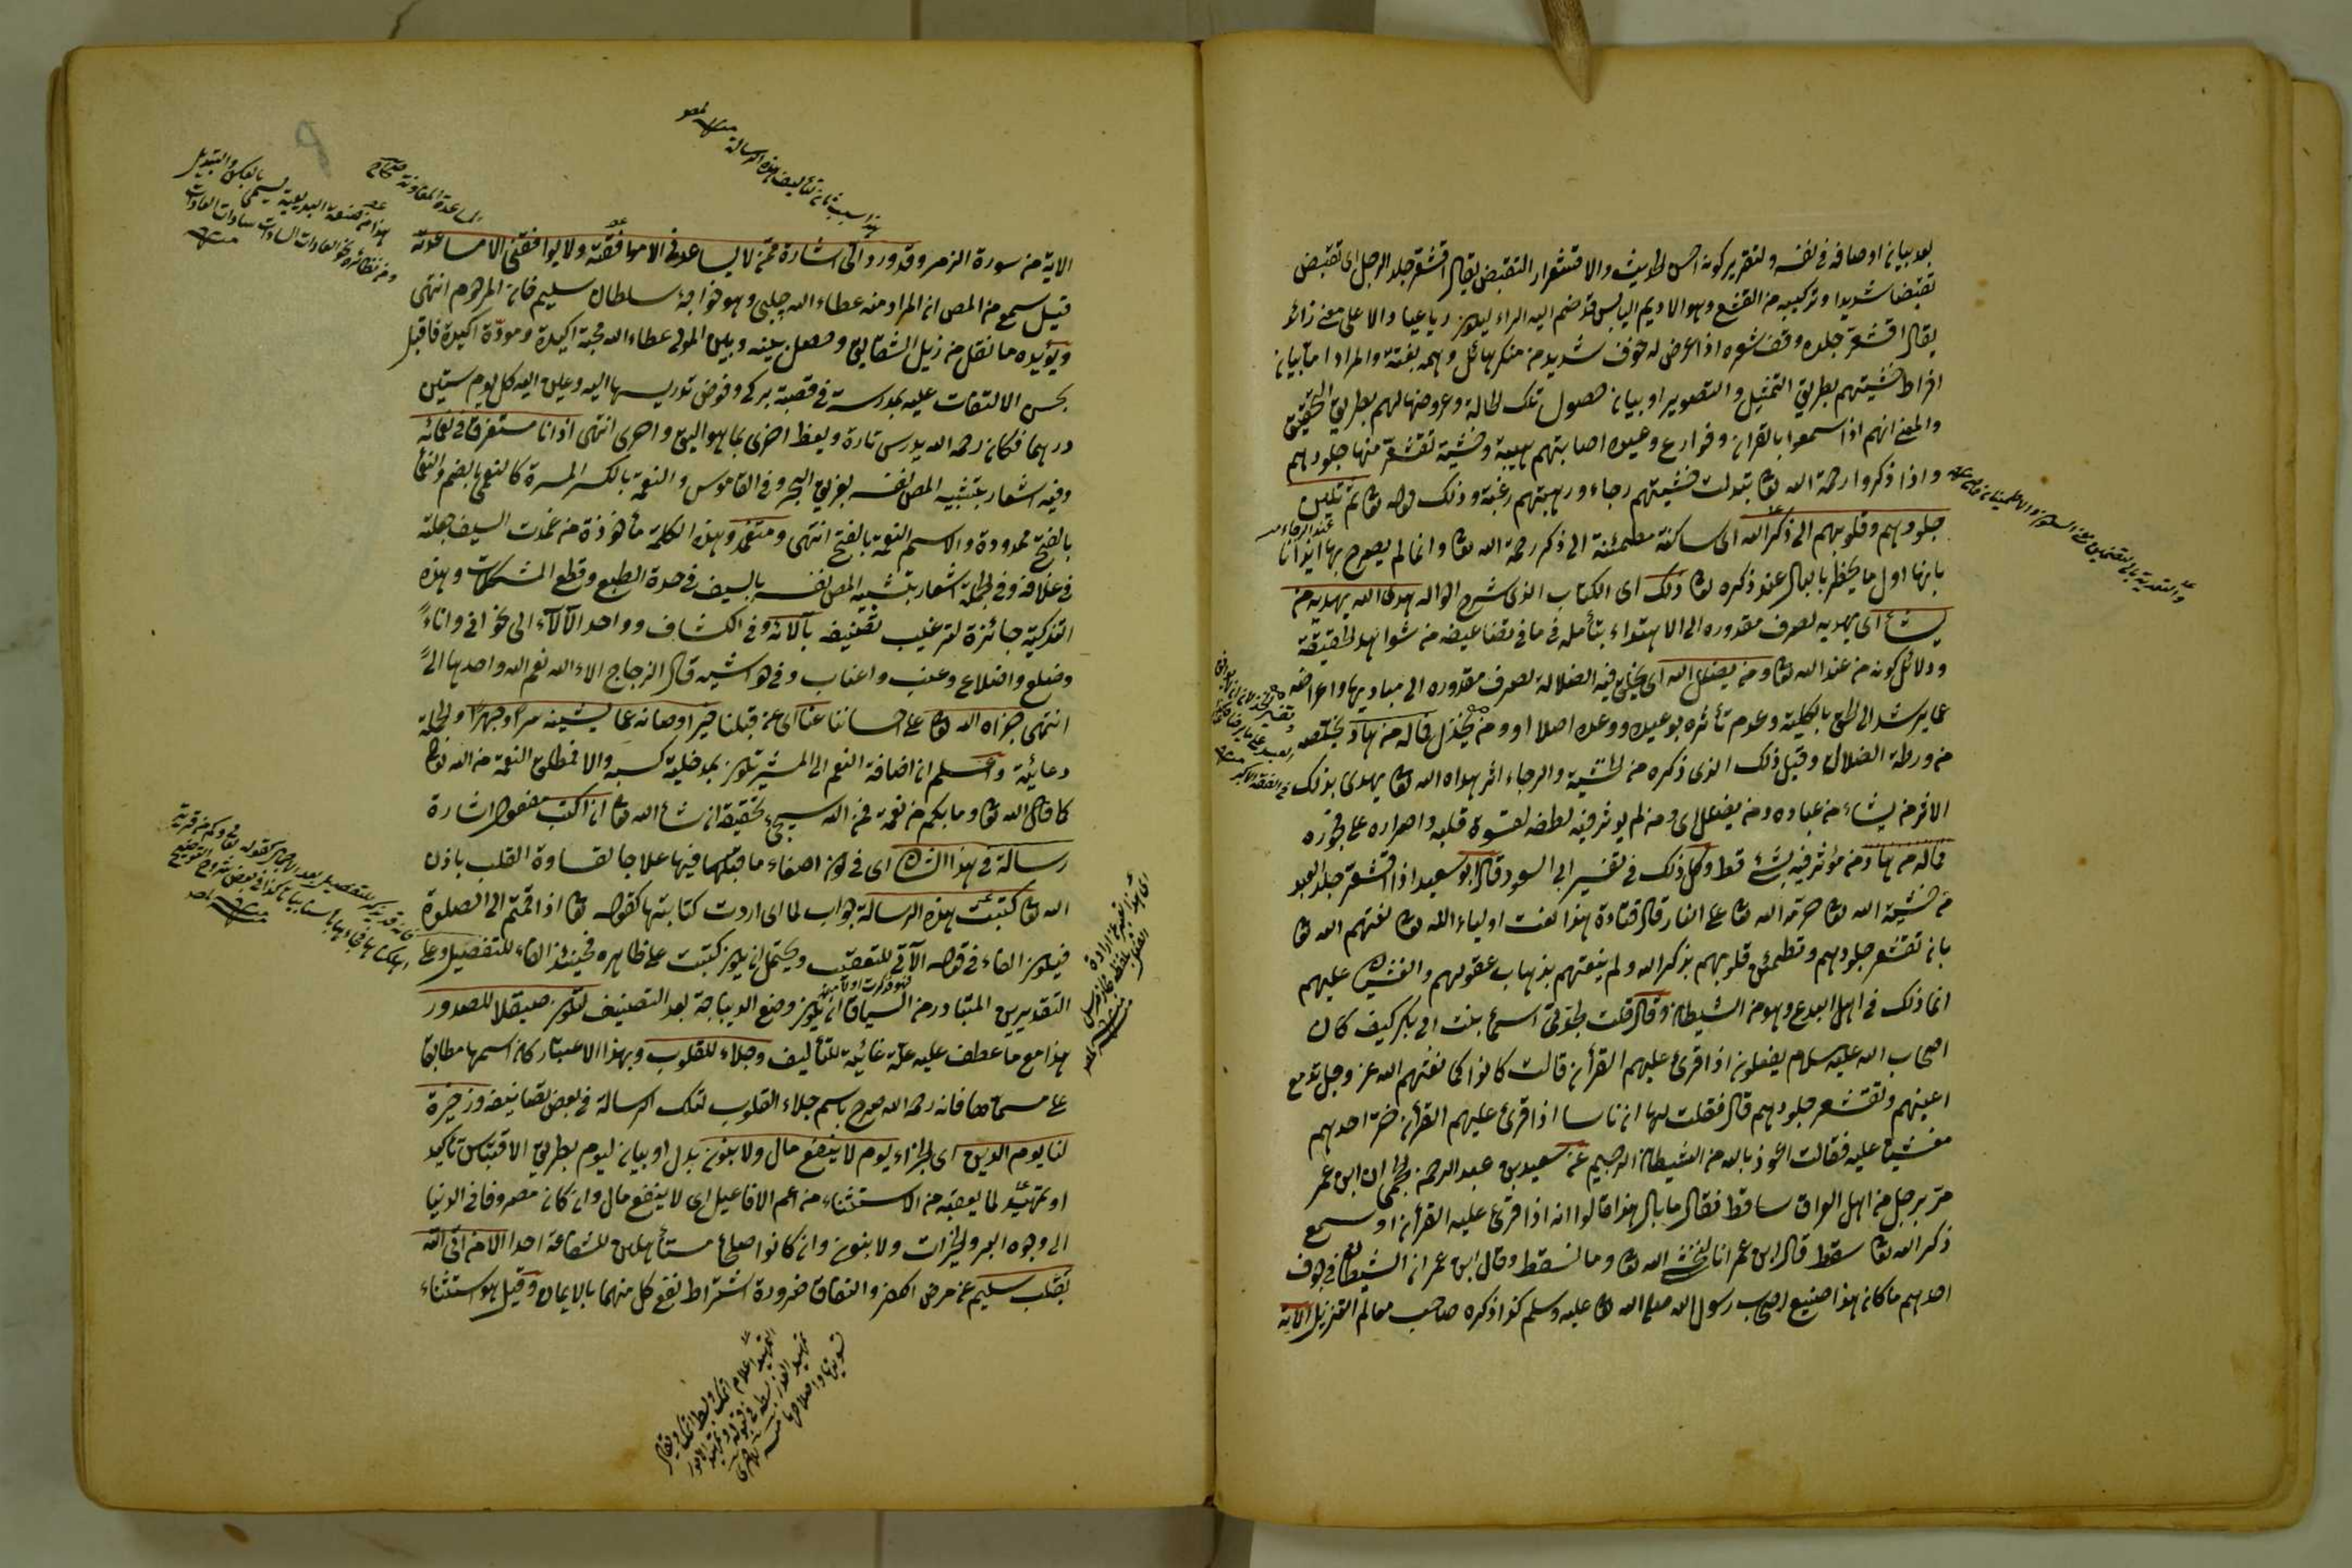 بعد بيان اوصافه في نفسه ولتقرير كونه احسن الحديث والاقشعرار التقبض يقال اقشعر جلد الرجل اى تقبض
تقبضا شديدا وتركيبه من القشع وهو الاديم اليابس قد ضم اليه الراء ليكون رباعيا ودالا على معنى زائد
يقال اقشعر جلده وقف شعره اذا عرض له خوف شديد من منكر هائل دهمه بغتة والمراد اما بيان
افراط خشيتهم بطريق التمثيل والتصوير او بيان حصول تلك الحالة وعروضها لهم بطريق التحقيق
والمعنى انهم اذا سمعوا بالقران وقوارع وعيده اصابتهم هيبة وخشية تقشعر منها جلودهم
واذا ذكروا رحمة الله تعا تبدلت خشيتهم رجاء ورهبتهم رغبة وذلك قوله تعا ثم تلين
جلودهم وقلوبهم الى ذكر الله اى ساكنة مطمئنة الى ذكر رحمة الله تعا وانما لم يصرح بها ايذانا
بانها اول ما يخطر بالبال عند ذكره تعا ذلك اى الكتاب الذى شرح احواله هدى الله يهدى به من
يشاء اى يهديه لصرف مقدوره الى الاهتداء بتأمله في ما في تضاعيفه من شواهد الحقيقة
ودلائل كونه من عند الله تعا ومن يضلل الله اى يخلق فيه الضلالة لصرف مقدوره الى مباديها واعراضه
عما يرشد الى الحق بالكلية وعدم تأثره بوعيده ووعده اصلا او ومن يخذل فماله من هاد يخلصه
من ورطة الضلال وقيل ذلك الذى ذكره من الخشية والرجاء اثر هداه الله تعا يهدى بذلك
الاثر من يشاء من عباده ومن يضلل اى ومن لم يؤثر فيه لطفه لقسوة قلبه واصراره على فجوره
فماله من هاد من مؤثر فيه بشئ قط وكل ذلك في تفسير ابى السعود قال ابو سعيد اذا اقشعر جلد العبد
من خشية الله تعا حرمه الله تعا على النار قال قتادة هذا نعت اولياء الله تعا نعتهم الله تعا
بان تقشعر جلودهم وتطمئن قلوبهم بذكر الله ولم ينعتهم بذهاب عقولهم والغشيان عليهم
انما ذلك في اهل البدع وهو من الشيطان وقال قلت لجدتى اسماء بنت ابى بكر كيف كان
اصحاب الله عليه سلام يفعلون اذا قرئ عليهم القرأن قالت كانوا كما نعتهم الله عز وجل تدمع
اعينهم وتقشعر جلودهم قال فقلت لها ان ناسا اذا قرئ عليهم القرأن خر احدهم
مغشيا عليه فقالت اعوذ بالله من الشيطان الرجيم عن سعيد بن عبد الرحمن الجمحى ان ابن عمر
مر برجل من اهل العراق ساقط فقال ما بال هذا قالوا انه اذا قرئ عليه القرأن او سمع
ذكر الله تعا سقط قال ابن عمر انا لنخشى الله تعا وما نسقط وقال ابن عمر ان الشيطان في جوف
احدهم ما كان هذا صنيع اصحاب رسول الله صلى الله تعا عليه وسلم كذا ذكره صاحب معالم التنزيل الاية
هذا سبب ثان لتأليف هذه الرسالة
الاية من سورة الزمر وقد ورد الى اشارة ممن لا يساعدنى الا موافقته ولا يوافقنى الا مساعدته
قيل سمع من المص ان المراد منه عطاء الله چلبى وهو خواجه سلطان سليم خان المرحوم انتهى
ويؤيده ما نقل من ذيل الشقايق وحصل بينه وبين المولى عطاء الله محبة اكيدة ومودة اكيدة فاقبل
بحسن الالتفات عليه بمدرسة في قصبة بركى وفوض تدريسها اليه وعين اليه كل يوم ستين
درهما فكان رحمه الله يدرس تارة ويعظ اخرى بما هو اليق واحرى انتهى اذ انا مستغرق في نعمائه
وفيه اشعار بتشبيه المص نفسه بغريق البحر وفي القاموس والنعمة بالكسر المسرة كالنعمى بالضم والنعما
بالفتح ممدودة والاسم النعمة بالفتح انتهى ومتغمد وهذه الكلمة مأخوذة من غمدت السيف جعلته
في غلافه وفي الجملة اشعار بتشبيه المص نفسه بالسيف في حدة الطبع وقطع المشكلات وهذه
التزكية جائزة لترغيب تصنيفه بآلائه وفي الكشاف وواحد الآلاء الى نحو انى واناء
وضلع واضلاع وعنب واعناب وفي حواشيه قال الزجاج الاء الله نعم الله واحدها الىً
انتهى جزاه الله تعا على احساننا عنا اى عن قبلنا خير اوصانه عما يشينه سرا وجهرا والجملة
دعائية واعلم ان اضافة النعم الى المشير تكون بمدخلية كسبه والا فمطلق النعمة من الله تعا
كما قال الله تعا وما بكم من نعمة فمن الله سيجئ تحقيقه ان شاء الله تعا ان اكتب مفعول اشارة
رسالة في هذا الشان اى في كون اصغاء ما قبلها فيها علاجا لقساوة القلب باذن
الله تعا كتبت هذه الرسالة جواب لما اى اردت كتابتها كقوله تعا اذا قمتم الى الصلوة
فيكون الفاء في قوله الآتى للتعقيب ويحتمل ان يكون كتبت على ظاهره فحينئذ الفاء للتفصيل وعلى
التقديرين المتبادر من السياق ان يكون وضع الديباجة بعد التصنيف لتكون صيقلا للصدور
هذا مع ما عطف عليه علة غائية للتأليف وجلاء للقلوب وبهذا الاعتبار كان اسمها مطابقا
على مسماها فانه رحمه الله صرح باسم جلاء القلوب لتلك الرسالة في بعض تصانيفه وذخيرة
لنا يوم الدين اى الجزاء يوم لا ينفع مال ولا بنون بدل او بيان ليوم بطريق الاقتباس تأكيد
او تمهيد لما يعقبه من الاستثناء من اعم الافاعيل اى لا ينفع مال وان كان مصروفا في الدنيا
الى وجوه البر والخيرات ولا بنون وان كانوا صلحاء مستأهلين للشفاعة احدا الا من اتى الله
بقلب سليم عن مرض الكفر والنفاق ضرورة اشتراط نفع كل منهما بالايمان وقيل هو استثناء